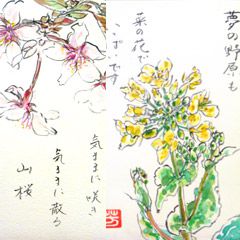 夢の野原も
菜の花で
いっぱいです
芳
気ままに咲き
気ままに散る
山桜